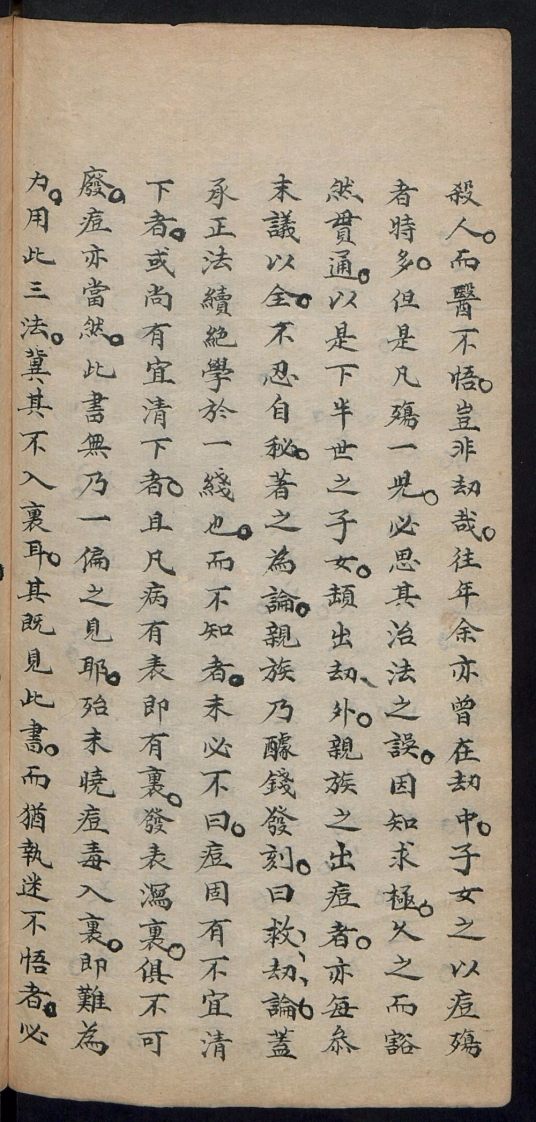 殺人。而醫不悟。豈非劫哉。往年余亦曾在劫中。子女之以痘殤
者時多。但是凡殤一児。必思其治法之誤。因知求極。久之而豁
然貫通。以是下半世之子女。頓出劫、外。親族之出痘者。亦每叅
末議以全。不忍自秘。著之為論。親族乃醵錢發刻。曰救、劫、論。蓋
承正法續絶學於一綫也。而不知者。未必不曰。痘固有不宜清
下者。或尚有宜清下者。且凡病有表即有裏。發表瀉裏。俱不可
廢。痘亦當然。此書無乃一偏之見耶。殆未曉痘毒入裏。即難為
力。用此三法。冀其不入裏耳。其既見此書。而猶執迷不悟者。必